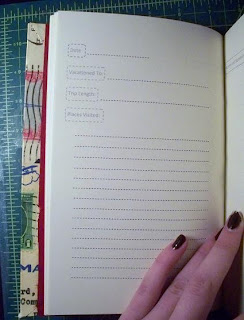 Date:
Vacationed To:
Trip Length:
Places Visited:
MA